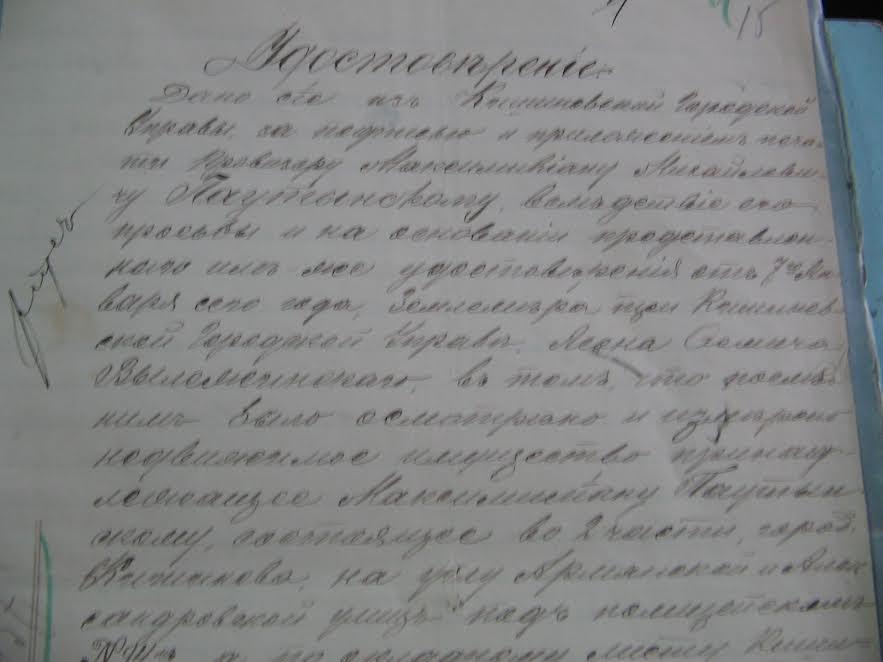 15
Удостовѣреніе
Дано сіе изъ Кишиневской Городской
Управы, за подписью и приложеніемъ печа-
ти Провизору Максимиліану Михайлови-
чу Паутынскому, вслѣдствіе его
просьбы и на основаніи представлен-
наго имъ же удостовѣренія отъ 7го Ян
варя сего года, Землемѣра при Кишинев-
ской Городской Управѣ, Леона Осипича
въ томъ, что послѣд-
нимъ было осмотрѣно и измѣрено
недвижимое имущество принад-
лежащее Максимиліану Паутын-
скому, состоящее во 2 части, город.
Кишинева, на углу Армянской и Алек
сандровской улицъ подъ полицейскимъ
№ а по окладному листу Киши-